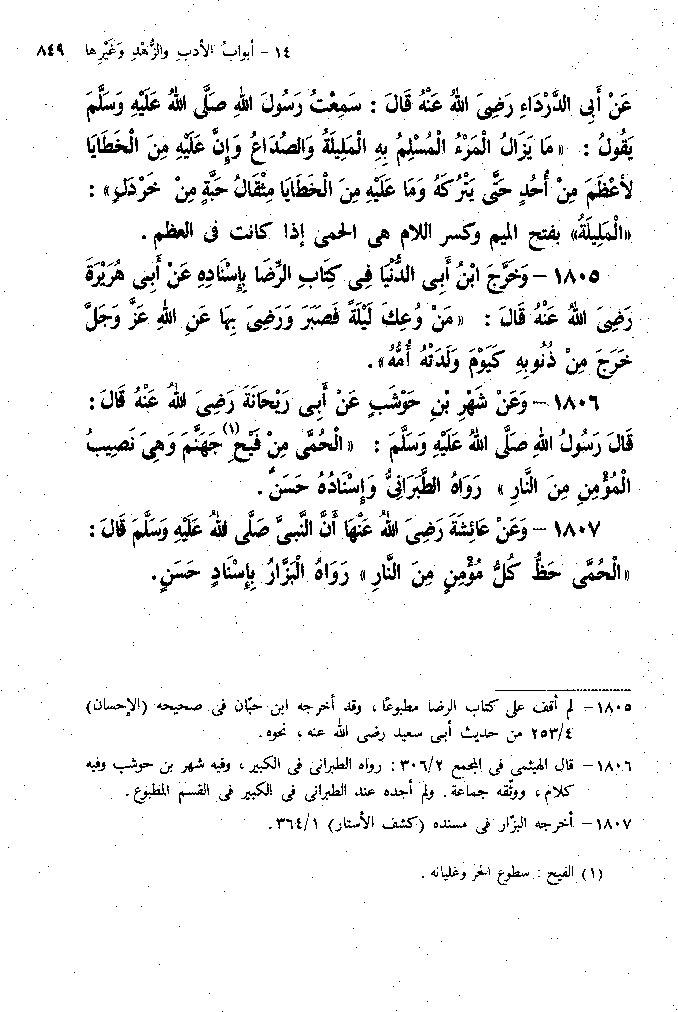 ١٤ - أبوابُ الأدبِ والزُّهْدِ وَغَيْرِها ٨٤٩
عَنْ أَبِى الدَّرْدَاءِ رَضِىَ اللهُ عَنْهُ قَالَ : سَمِعْتُ رَسُولَ اللهِ صَلَّى اللهُ عَلَيْهِ وَسَلَّمَ
يَقُولُ : « مَا يَزَالُ الْمَرْءُ الْمُسْلِمُ بِهِ الْمَلِيلَةُ وَالصُّدَاعُ وَإِنَّ عَلَيْهِ مِنَ الْخَطَايَا
لأَعْظَمَ مِنْ أُحُدٍ حَتَّى يَتْرُكَهُ وَمَا عَلَيْهِ مِنَ الْخَطَايَا مِثْقَالُ حَبَّةٍ مِنْ خَرْدَلٍ» :
«الْمَلِيلَةُ» بفتح الميم وكسر اللام هى الحمى إذا كانت فى العظم .
١٨٠٥ - وَخَرَّجَ ابْنُ أَبِى الدُّنْيَا فِى كِتَابِ الرِّضَا بِإِسْنَادِهِ عَنْ أَبِى هُرَيْرَةَ
رَضِىَ اللهُ عَنْهُ قَالَ : « مَنْ وُعِكَ لَيْلَةً فَصَبَرَ وَرَضِىَ بِهَا عَنِ اللهِ عَزَّ وَجَلَّ
خَرَجَ مِنْ ذُنُوبِهِ كَيَوْمَ وَلَدَتْهُ أُمُّهُ» .
١٨٠٦ - وَعَنْ شَهْرِ بْنِ حَوْشَبٍ عَنْ أَبِى رَيْحَانَةَ رَضِىَ اللهُ عَنْهُ قَالَ :
قَالَ رَسُولُ اللهِ صَلَّى اللهُ عَلَيْهِ وَسَلَّمَ : « الْحُمَّى مِنْ فَيْحِ(١) جَهَنَّمَ وَهِىَ نَصِيبُ
الْمُؤْمِنِ مِنَ النَّارِ » رَوَاهُ الطَّبَرَانِىُّ وَإِسْنَادُهُ حَسَنٌ .
١٨٠٧ - وَعَنْ عَائِشَةَ رَضِىَ اللهُ عَنْهَا أَنَّ النَّبِىَّ صَلَّى اللهُ عَلَيْهِ وَسَلَّمَ قَالَ :
« الْحُمَّى حَظُّ كُلِّ مُؤْمِنٍ مِنَ النَّارِ » رَوَاهُ الْبَزَّارُ بِإِسْنَادٍ حَسَنٍ .
١٨٠٥ - لم أقف على كتاب الرضا مطبوعًا ، وقد أخرجه ابن حبّان فى صحيحه (الإحسان)
٢٥٣/٤ من حديث أبى سعيد رضى الله عنه ، نحوه .
١٨٠٦ - قال الهيثمى فى المجمع ٣٠٦/٢ : رواه الطبرانى فى الكبير ، وفيه شهر بن حوشب وفيه
كلام ، ووثّقه جماعة . ولم أجده عند الطبرانى فى الكبير فى القسم المطبوع .
١٨٠٧ - أخرجه البزّار فى مسنده (كشف الأستار) ٣٦٤/١ .
(١) الفيح : سطوع الحر وغليانه .